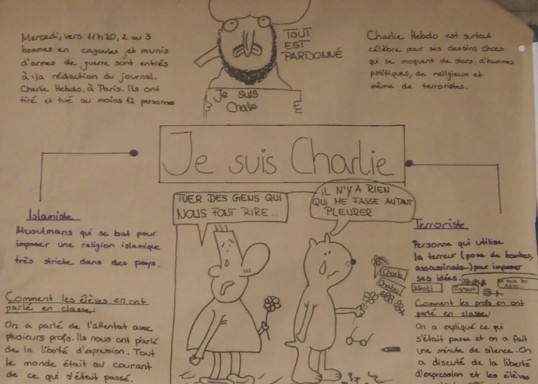 Mercredi, vers 11h20, 2 ou 3
hommes en cagoules et munis
d'armes de guerre sont entrés
à la rédaction du journal.
Charlie Hebdo, à Paris. Ils ont
tiré et tué au moins 12 personnes
TOUT
EST
PARDONNÉ
Je suis
Charlie
Charlie Hebdo est surtout
célèbre pour ses dessins chocs
qui se moquent de stars, d'hommes
politiques, de religieux et
même de terroristes.
Je suis Charlie
Islamiste
Musulmans qui se bat pour
imposer une religion islamique
très stricte dans des pays.
Comment les élèves en ont
parlé en classe
On a parlé de l'attentat avec
plusieurs profs. Ils nous ont parlé
de la liberté d'expression. Tout
le monde était au courant
de ce qui s'était passé.
TUER DES GENS QUI
NOUS FONT RIRE...
IL N'Y A RIEN
QUI ME FASSE AUTANT
PLEURER
Charb
Terroriste
Personne qui utilise
la terreur (pose de bombes,
assassinats...) pour imposer
ses idées.
Comment les profs en ont
parlé en classe
On a expliqué ce qui
s'était passé et on a fait
une minute de silence. On
a discuté de la liberté
d'expression et les élèves